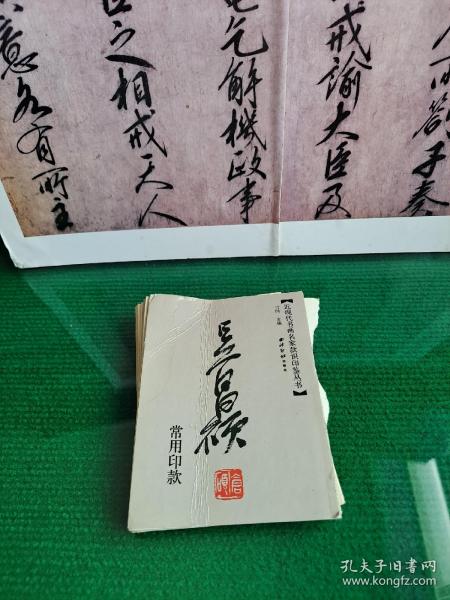 意各有所主
之相戒天人
乞解機政事
戒諭大臣及
子奏
【近现代书画名家款识印鉴丛书】
吴昌硕
常用印款
倉碩
孔夫子旧书网
www.kongfz.com